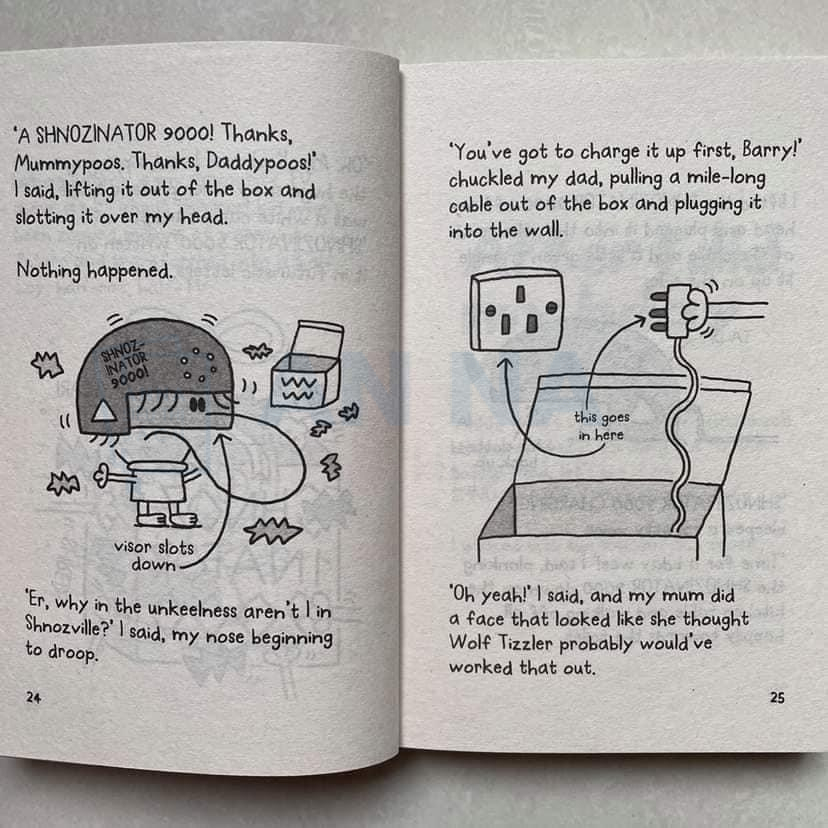 'A SHNOZINATOR 9000! Thanks,
Mummypoos. Thanks, Daddypoos!'
I said, lifting it out of the box and
slotting it over my head.
Nothing happened.
SHNOZ-
INATOR
9000!
visor slots
down
'Er, why in the unkeelness aren't I in
Shnozville?' I said, my nose beginning
to droop.
24
'You've got to charge it up first, Barry!'
chuckled my dad, pulling a mile-long
cable out of the box and plugging it
into the wall.
this goes
in here
'Oh yeah!' I said, and my mum did
a face that looked like she thought
Wolf Tizzler probably would've
worked that out.
25